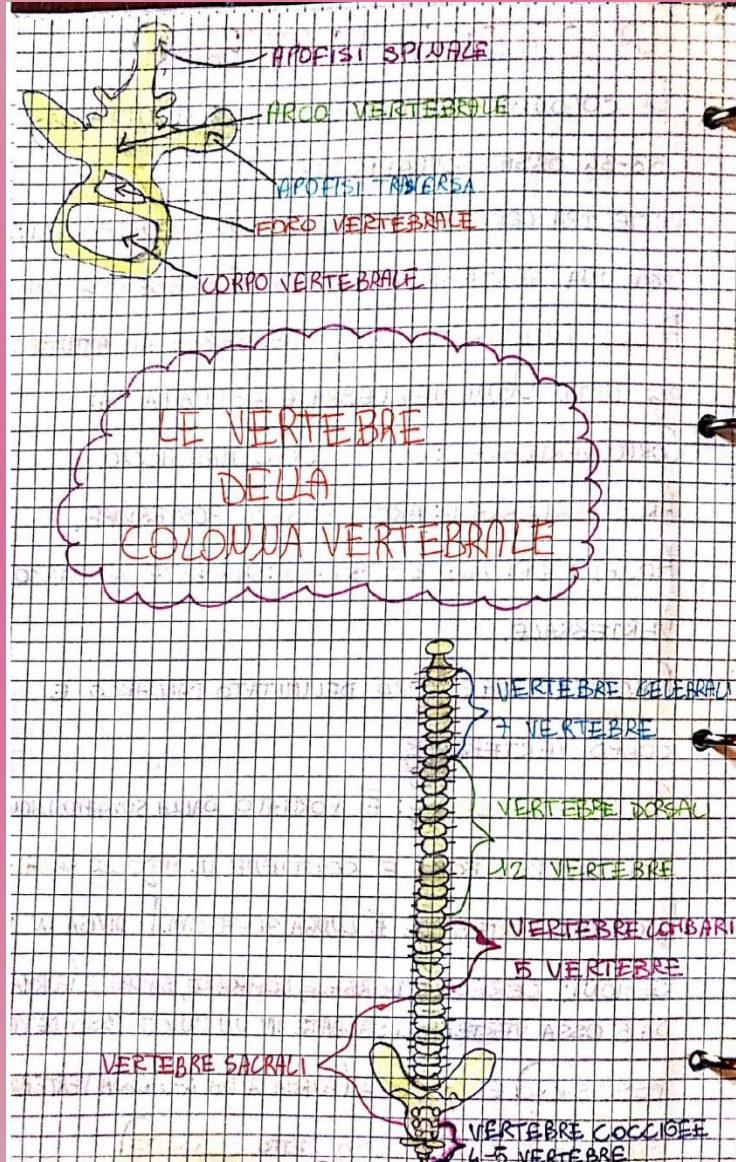 APOFISI SPINALE
ARCO VERTEBRALE
APOFISI TRAVERSA
FORO VERTEBRALE
CORPO VERTEBRALE
LE VERTEBRE
DELLA
COLONNA VERTEBRALE
VERTEBRE CELEBRALI
7 VERTEBRE
VERTEBRE DORSALI
12 VERTEBRE
VERTEBRE LOMBARI
5 VERTEBRE
VERTEBRE SACRALI
VERTEBRE COCCIGEE
4-5 VERTEBRE